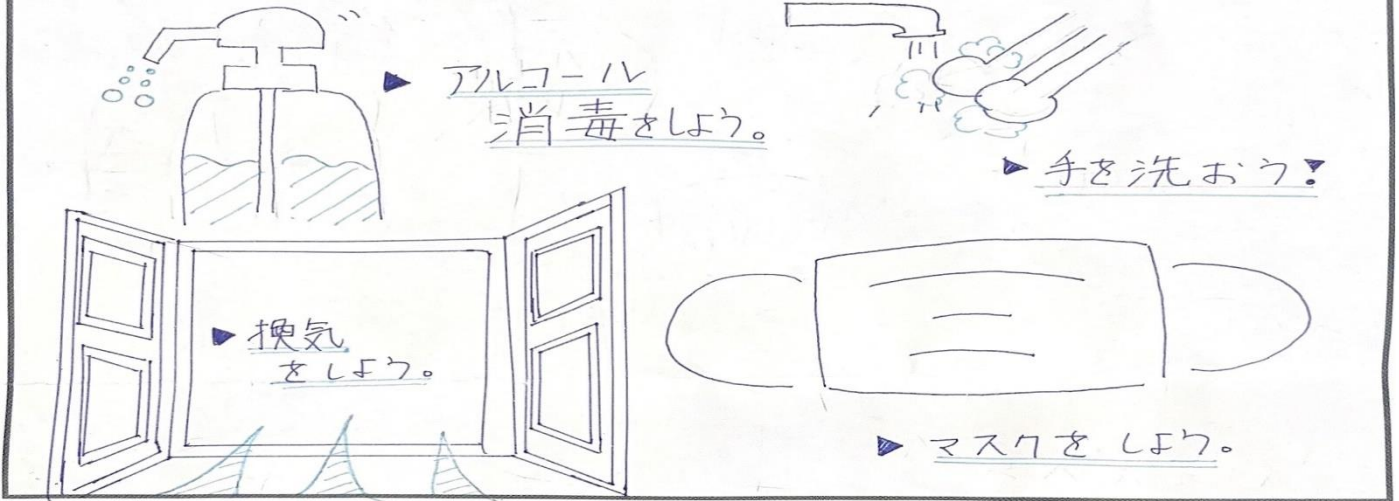 ▶ アルコール
消毒をしよう。
▶ 手を洗おう!
▶ 換気
をしよう。
▶ マスクをしよう。